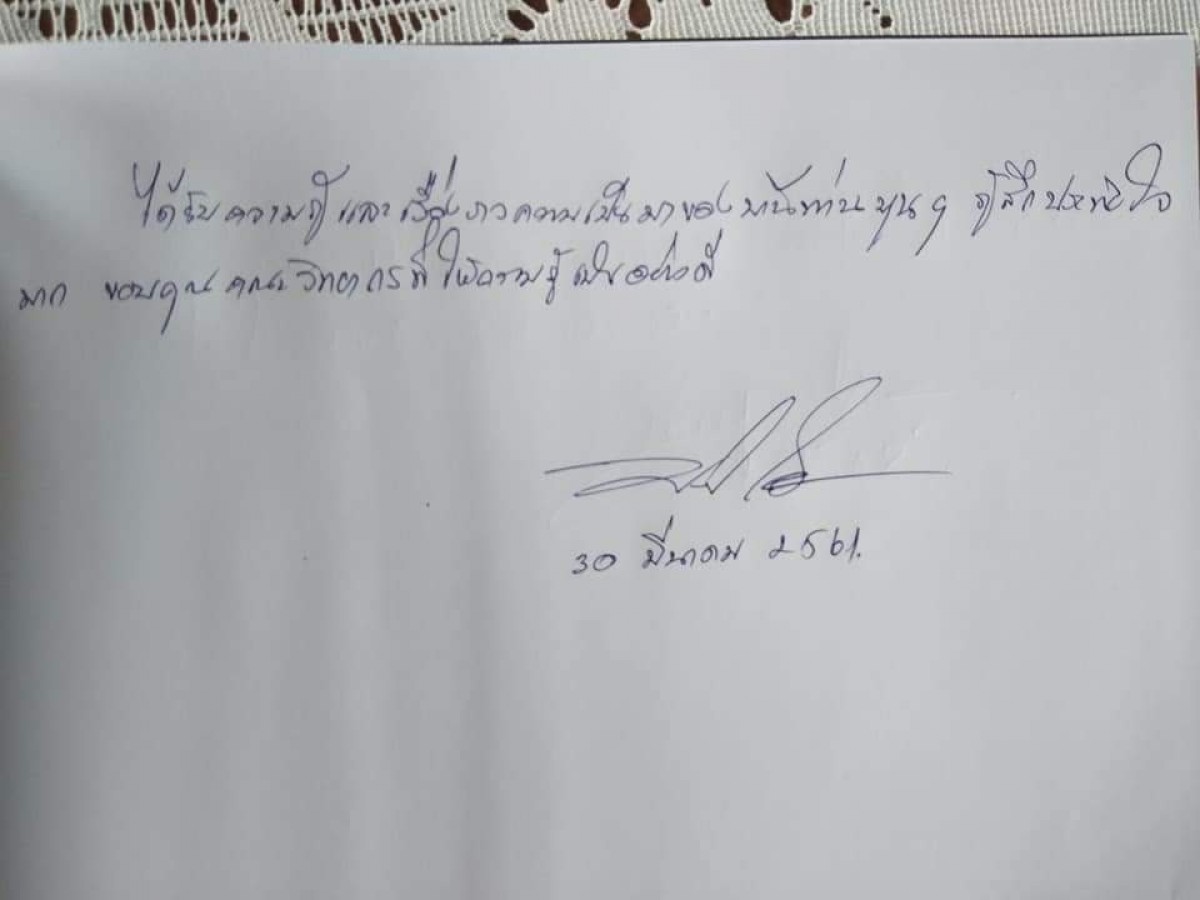 ได้รับความรู้และเรื่องราวความเป็นมาของบ้านท่านขุนๆ รู้สึกประทับใจ
มาก ขอบคุณคณะวิทยากรที่ให้ความรู้เป็นอย่างดี
30 มีนาคม 2561.